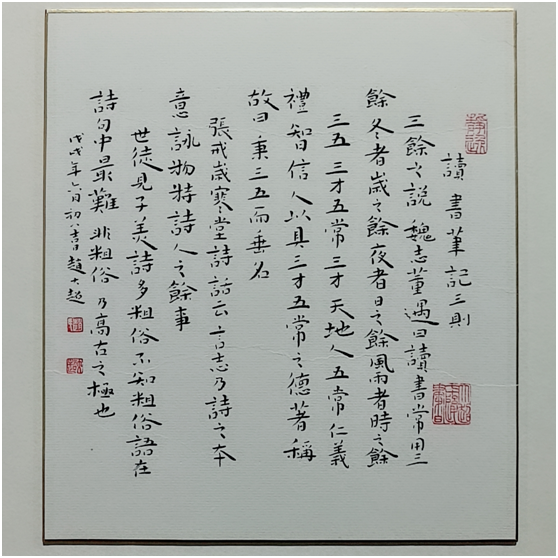 讀書筆記三則
三餘之說魏志董遇曰讀書常用三
餘冬者歲之餘夜者日之餘風雨者時之餘
三五三才五常三才天地人五常仁義
禮智信人以具三才五常之德著稱
故曰秉三五而垂名
張戒歲寒堂詩話云言志乃詩之本
意詠物特詩人之餘事
世徒見子美詩多粗俗不知粗俗語在
詩句中最難非粗俗乃高古之極也
戊戌年六月初八書趙大超